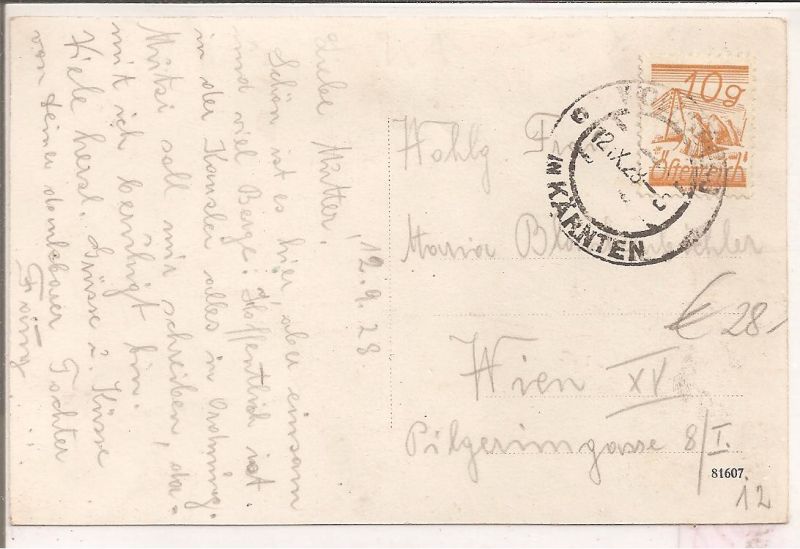 12.9.28
Liebe Mutter!
Schön ist es hier, aber einsam
und viel Berge. Hoffentlich ist
in der Kanzler alles in Ordnung.
Mitzi soll mir schreiben, da-
mit ich beruhigt bin.
Viele herzl. Grüsse u. Küsse
von Deiner dankbaren Tochter
10g
Österreich
12.IX.28
IN KÄRNTEN
Wohlg Frau
Maria
Wien XV
Pilgerimgasse 8/I.
€ 28
81607
12